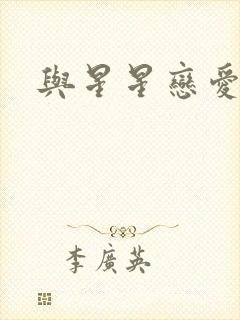 與星星戀愛
李廣英